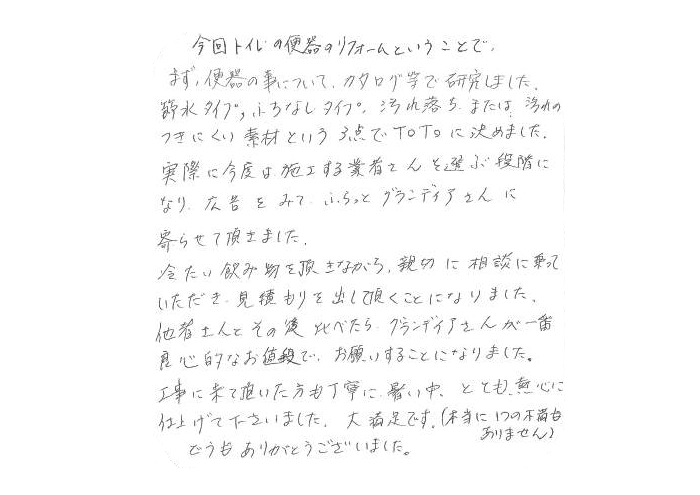 今回トイレの便器のリフォームということで、
まず、便器の事について、カタログ等で研究しました。
節水タイプ、ふちなしタイプ、汚れ落ち、または、汚れの
つきにくい素材という3点でTOTOに決めました。
実際に今度は施工する業者さんを選ぶ段階に
なり、広告をみて、ふらっとグランディアさんに
寄らせて頂きました。
冷たい飲み物を頂きながら、親切に相談に乗って
いただき、見積もりを出して頂くことになりました。
他者さんとその後比べたら、グランディアさんが一番
良心的なお値段で、お願いすることになりました。
工事に来て頂いた方も丁寧に、暑い中、とても熱心に
仕上げて下さいました。大満足です。(本当に1つの不満も
ありません)
どうもありがとうございました。